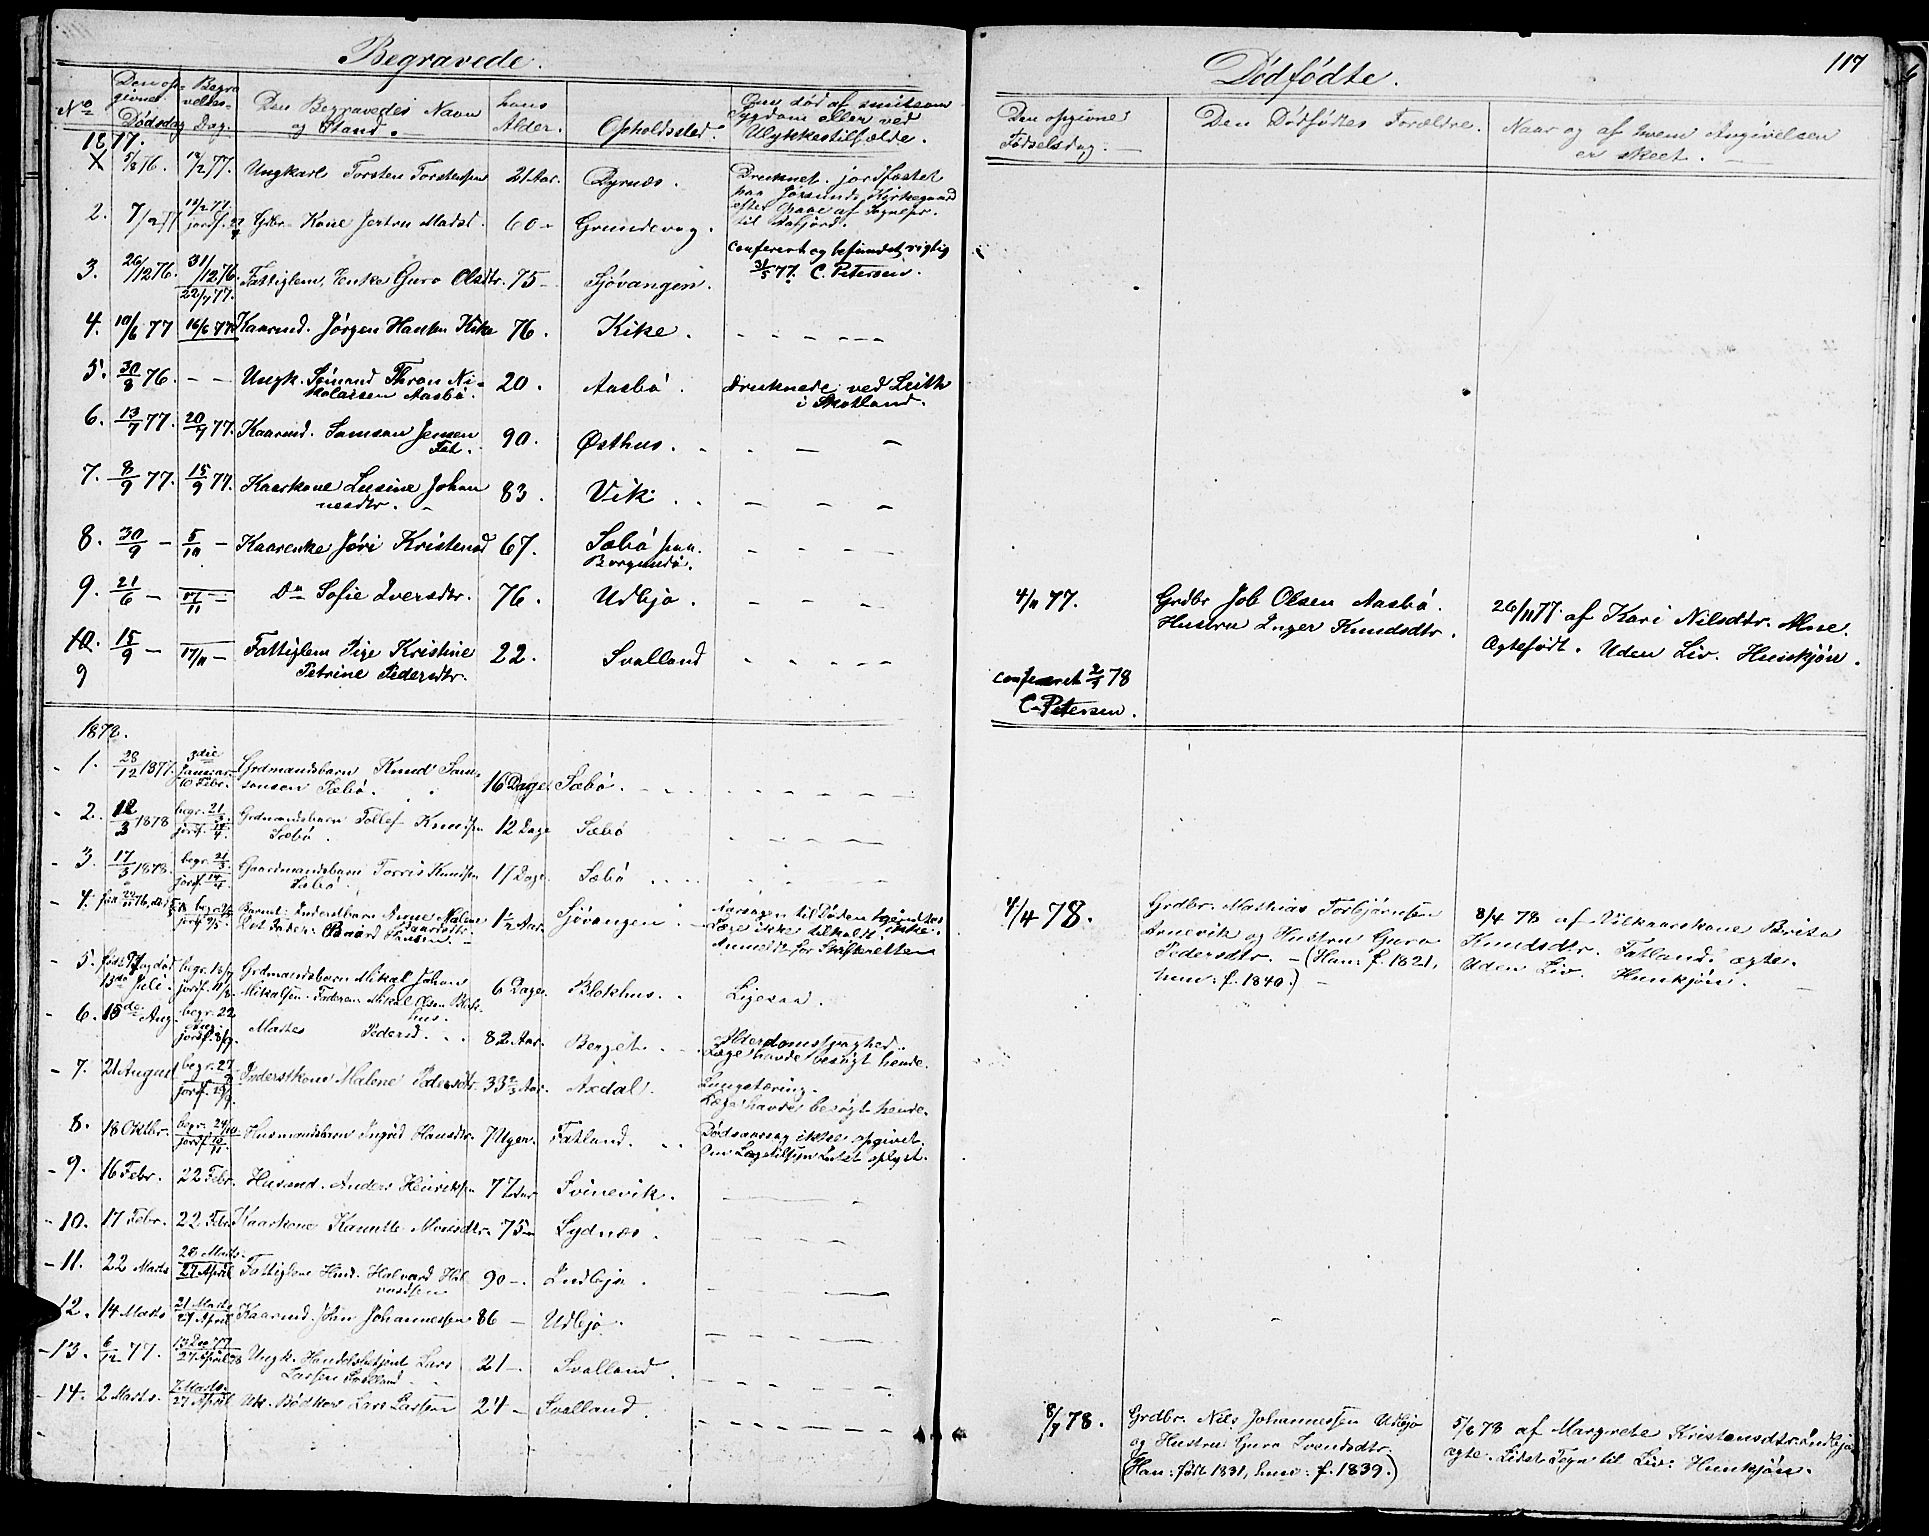 Begravede.
No
Den opgivne Dødsdag
Begravelses-Dag.
Den Begravedes Navn og Stand.
hans Alder.
Opholdssted.
Om død af smitsom Sygdom eller ved Ulykkestilfælde.
1877.
X 5/8 76. 12/2 77. Ungkarl Torsten Torstensen 21 Aar. Byrnæs. Druknet. jordfæstet
paa Kirkegaard
efter af Sognepr.
til
2. 7/2 77 jordf. Gdbr. Kone Jertru Madsd. 60 - Grundevag.
conferert og befundet rigtig
31/5 77. C. Petersen.
3. 26/12 76. 31/12 76. 22/7 77. Fattiglem, Enke Guro Olsdtr. 75 - Sjøvangen.
4. 10/6 77 16/6 77. Kaarmd. Jørgen Hansen Kike 76. Kike.
5. 30/8 76. - - Ungk. Sømand Thron Ni-
kolaisen Aasbø. 20. Aasbø. druknede ved Leith
i Skotland.
6. 13/7 77. 20/7 77. Kaarmd. Samson Jensen
Fat. 90. Østhus.
7. 8/9 77. 15/9 77. Kaarkone Lusine Johan
nesdtr. 83. Vik.
8. 30/9 - 5/10 - Kaarenke Jøri Kristensd 67. Sæbø paa
Borgundø.
9. 21/6 - 17/11 - Do Sofie Iversdtr. 76. Udbjo.
10. 15/9 - 17/11 - Fattiglem Pige Kristine
9 Petrine Pedersdtr. 22. Svalland
1878.
1. 28/12 1877. 3die Januar 10 Febr. Grdmandsbarn Knud Sam-
sonsen Sæbø. 16 Dage. Sæbø.
2. 12/3 1878 begr. 21/3 jordf. 14/4. Grdmandsbarn Tollef Knudsen
Sæbø. 12 Dage Sæbø
3. 17/3 1878. begr. 21/3. jordf. 14/4 Gaardmandsbarn Torris Knudsen
Sæbø. 17 Dage. Sæbø
4. begr. jordf. 9/5. Inderstbarn Anne Malene
Baard Hansen. 1½ Aar. Sjøvangen Aarsagen til Døden
Læge ikke tilkaldt
Anmeldt for Skifteretten
5. begr. 18/7 jordf. 11/8. Grdmandsbarn Mikal Johan
13de Juli. Mikalsen. Faderen: Mikal Olsen Blok-
hus. 6 Dage. Blokhus. Ligesaa.
6. 15de Aug. begr. 22 Aug. jordf. 8/9. Pedersd. 82 Aar. Berget. Alderdomssvaghed.
Læge havde besøgt hende.
7. 21 August begr. 27/8 jordf. 19/9. Inderstkone Malene Pedersdtr. 33 Aar. Axdal. Lungetæring.
Læge havde besøgt hende.
8. 18 Oktbr. begr. 24/10 jordf. 10/11. Husmandsbarn Ingrid Hansdtr. 7 Uger. Fatland. Dødsaarsag ikke opgivet.
Om Lægetilsyn Intet oplyst.
9. 16 Febr. 22 Febr. Husmd. Anders Henriksen 77 Aar Svinevik.
10. 17 Febr. 22 Febr Kaarkone Kanutte Monsdtr. 75 - Sydnæs.
11. 22 Marts 28 Marts. 27 April Fattiglem Hmd. Halvard Hal
vardsen 90 -. Indbjo.
12. 14 Marts 21 Marts 27 April Kaarmd. John Johannessen 86 - Udbjo.
13. 6/12 77. 13 Dec 77 27 April 78 Ungk. Handelsbetjent Lars
Larsen Svalland 21 -. Svalland.
14. 2 Marts. 7 Marts. 27 April Uk. Bødker Lars Larsen 24 - Svalland.
117
Dødfødte.
Den opgivne Fødselsdag.
Den Dødfødtes Forældre.
Naar og af hvem Angivelsen er skeet.
4/11 77. Grdbr Job Olsen Aasbø.
Hustru Inger Knudsdtr. 26/11 77. af Kari Nilsdtr. Moe.
Ægtefødt. Uden Liv. Hunkjøn.
conferert 2/1 78
C. Petersen.
4/4 78. Grdbr. Mathias Torbjørnsen
Arnevik og Hustru Guro
Pedersdtr. - (Han: f. 1821,
hun: f. 1840.) 8/4 78 af Vilkaarskone Brita
Knudsdtr. Fatland. ægte.
Uden Liv. Hunkjøn.
8/7 78. Grdbr. Nils Johannessen Udbjo
og Hustru Guro Svendsdtr.
(Han: født 1831, hun: f. 1839.) 5/8 78 af Margrete Kristensdtr. Indbjo,
ægte. Lidet Tegn til Liv. Hunkjøn.